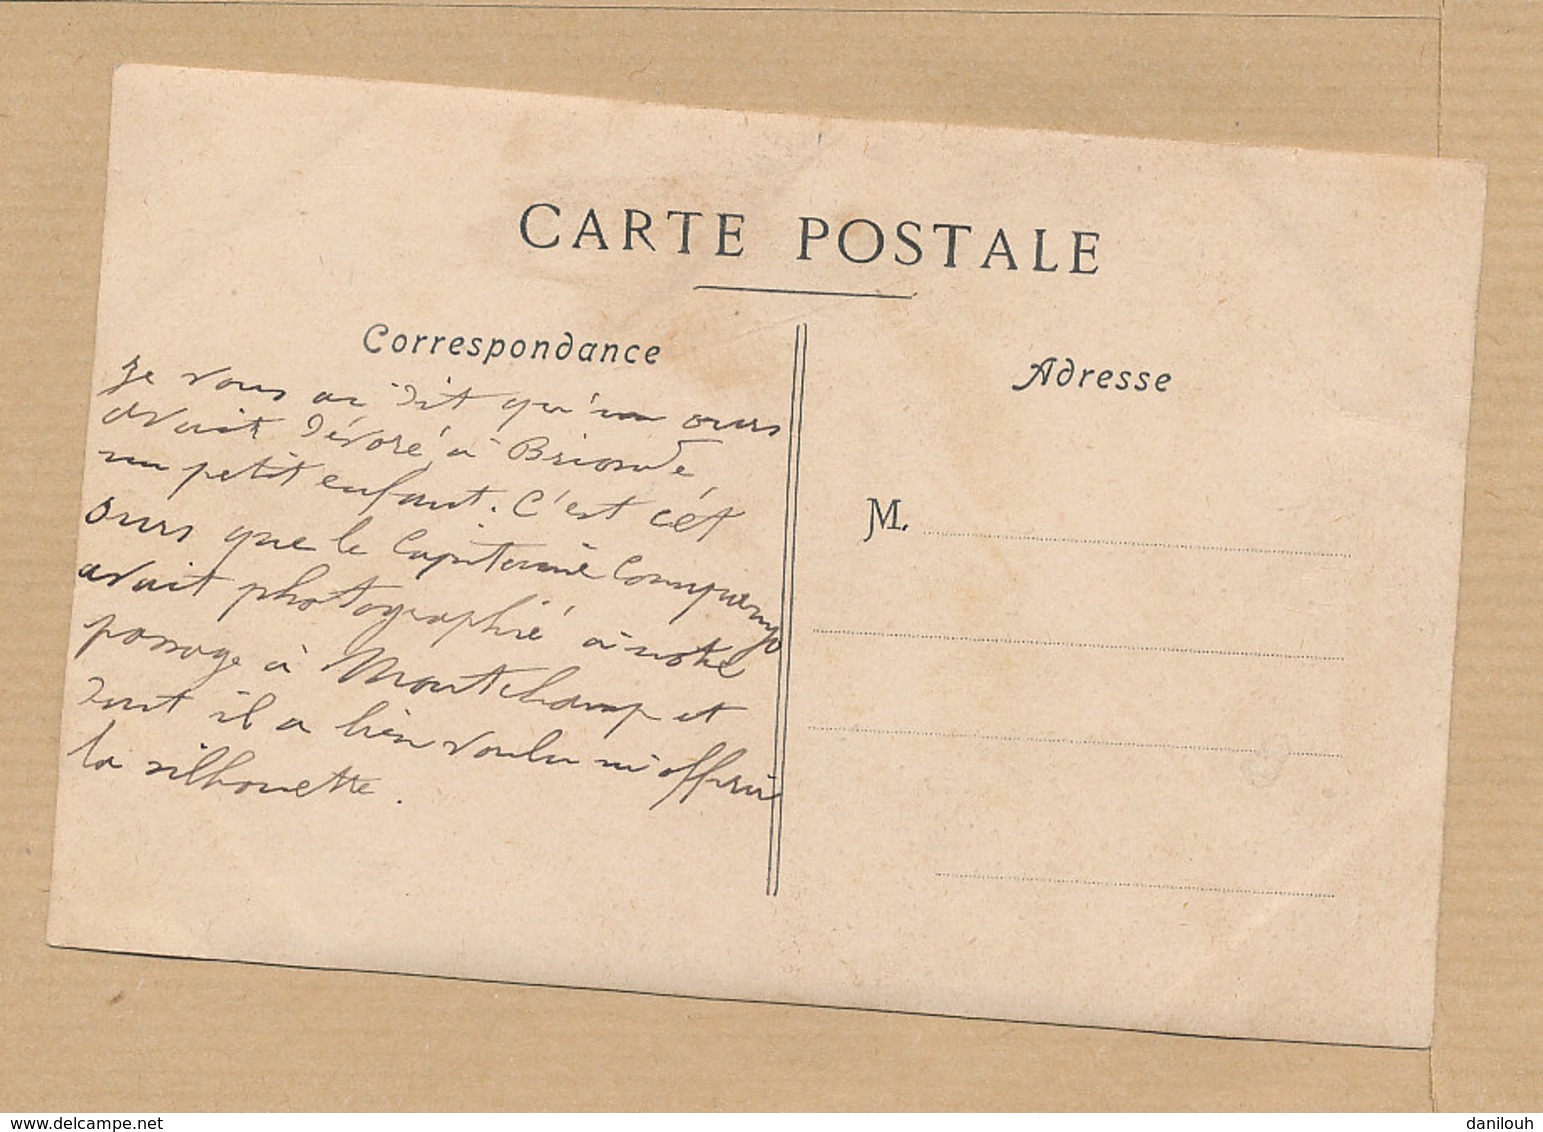 CARTE POSTALE
Correspondance
Adresse
Je vous ai dit qu'un ours
avait dévoré, à Brioude,
un petit enfant. C'est cet
ours que le Capitaine
avait photographié à notre
passage à Montchamp et
dont il a bien voulu m'offrir
la silhouette.
M.
danilouh